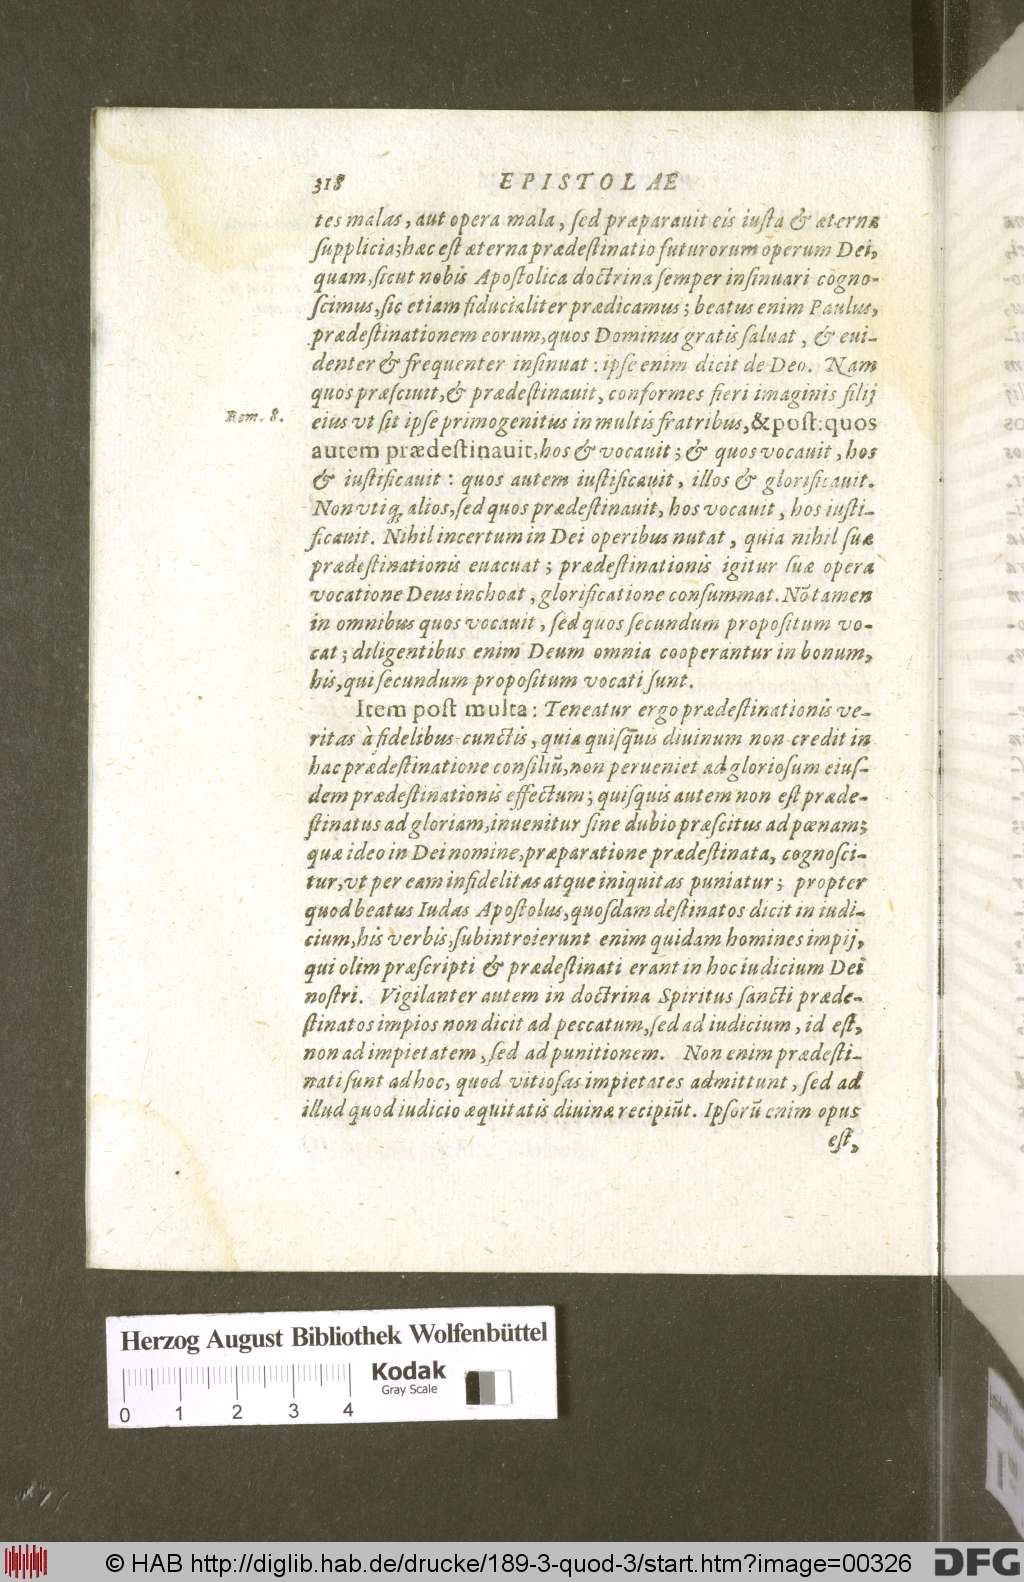 318 EPISTOLAE
tes malas, aut opera mala, ſed præparauit eis iuſta & æterna
ſupplicia; hæc eſt æterna prædeſtinatio futurorum operum Dei,
quam, ſicut nobis Apoſtolica doctrina ſemper inſinuari cogno-
ſcimus, ſic etiam fiducialiter prædicamus; beatus enim Paulus,
prædeſtinationem eorum, quos Dominus gratis ſaluat, & eui-
denter & frequenter inſinuat: ipſe enim dicit de Deo. Nam
quos præſciuit, & prædeſtinauit, conformes fieri imaginis filij
Rom. 8.
eius vt ſit ipſe primogenitus in multis fratribus, & poſt: quos
autem prædeſtinauit, hos & vocauit; & quos vocauit, hos
& iuſtificauit: quos autem iuſtificauit, illos & glorificauit.
Non vtiq; alios, ſed quos prædeſtinauit, hos vocauit, hos iuſti-
ficauit. Nihil incertum in Dei operibus nutat, quia nihil ſuæ
prædeſtinationis euacuat; prædeſtinationis igitur ſuæ opera
vocatione Deus inchoat, glorificatione conſummat. Nõ tamen
in omnibus quos vocauit, ſed quos ſecundum propoſitum vo-
cat; diligentibus enim Deum omnia cooperantur in bonum,
his, qui ſecundum propoſitum vocati ſunt.
Item poſt multa: Teneatur ergo prædeſtinationis ve-
ritas à fidelibus cunctis, quia quiſquis diuinum non credit in
hac prædeſtinatione conſiliũ, non perueniet ad glorioſum eiuſ-
dem prædeſtinationis effectum; quiſquis autem non eſt præde-
ſtinatus ad gloriam, inuenitur ſine dubio præſcitus ad pœnam;
quæ ideo in Dei nomine, præparatione prædeſtinata, cognoſci-
tur, vt per eam infidelitas atque iniquitas puniatur; propter
quod beatus Iudas Apoſtolus, quoſdam deſtinatos dicit in iudi-
cium, his verbis, ſubintroierunt enim quidam homines impij,
qui olim præſcripti & prædeſtinati erant in hoc iudicium Dei
noſtri. Vigilanter autem in doctrina Spiritus ſancti præde-
ſtinatos impios non dicit ad peccatum, ſed ad iudicium, id eſt,
non ad impietatem, ſed ad punitionem. Non enim prædeſti-
nati ſunt ad hoc, quod vitioſas impietates admittunt, ſed ad
illud quod iudicio æquitatis diuinæ recipiũt. Ipſorũ enim opus
eſt,
Herzog August Bibliothek Wolfenbüttel
Kodak
Gray Scale
0 1 2 3 4
© HAB http://diglib.hab.de/drucke/189-3-quod-3/start.htm?image=00326
DFG